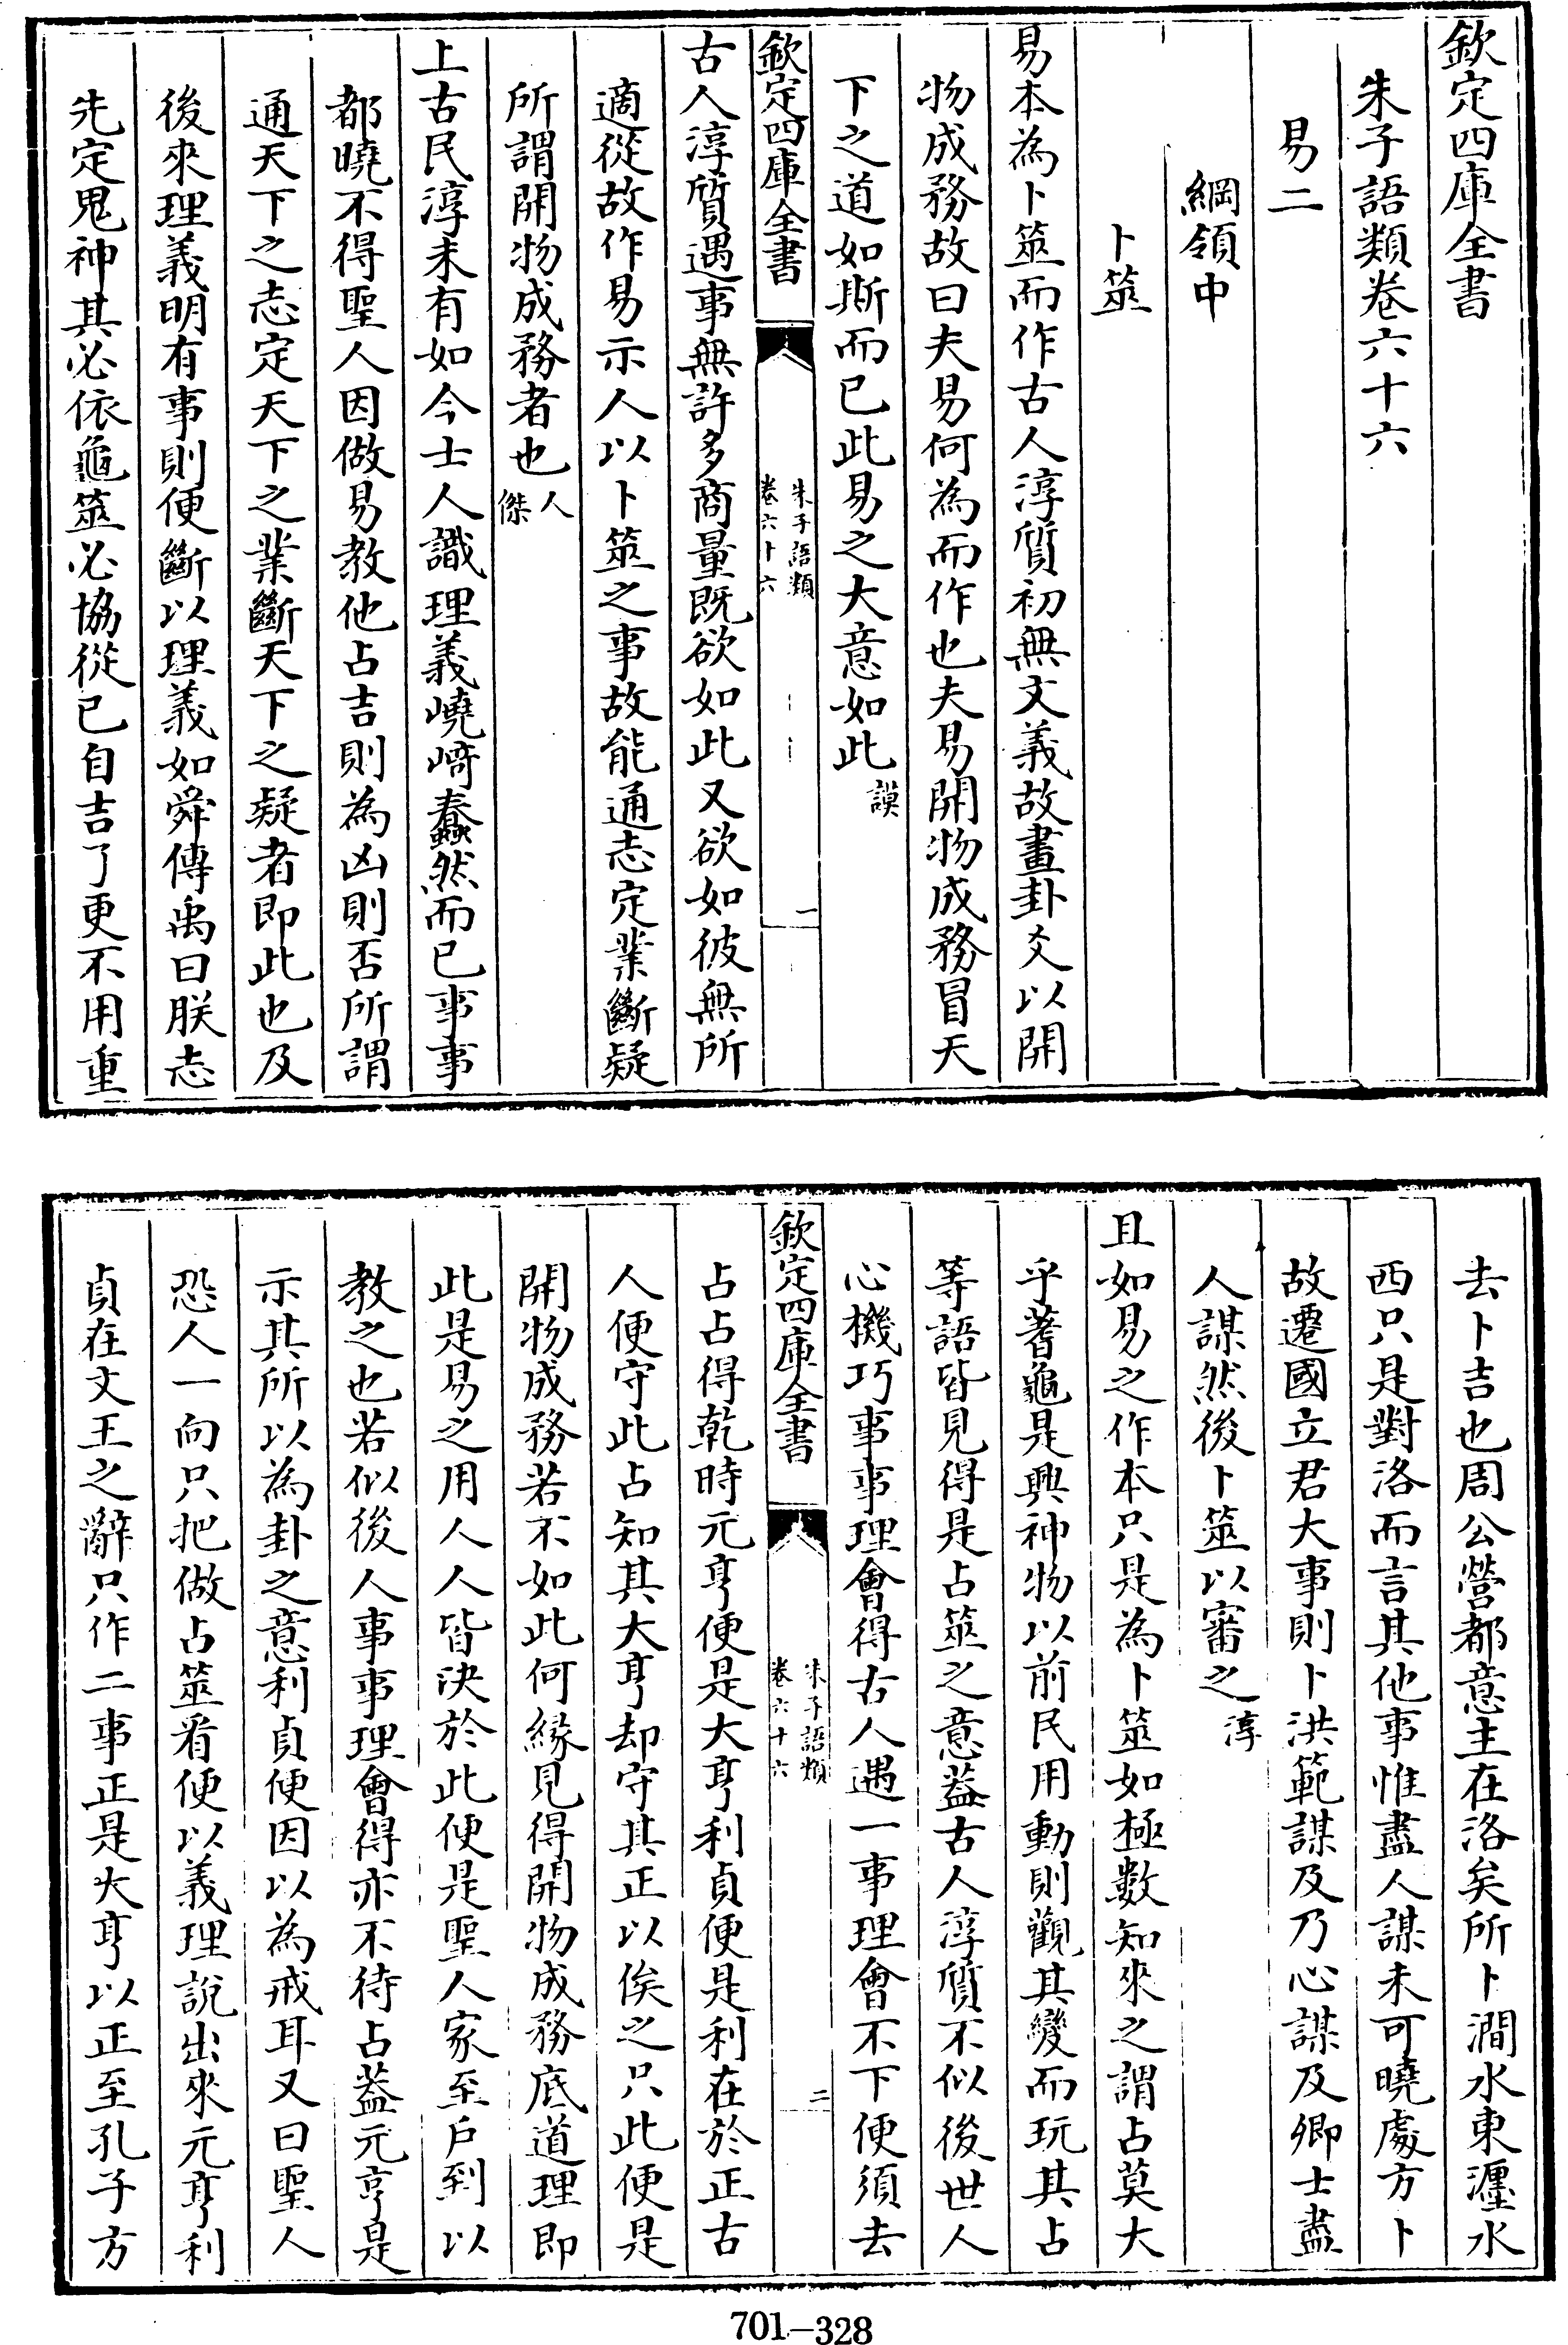 欽定四庫全書
朱子語類卷六十六
易二
綱領中
卜筮
易本為卜筮而作古人淳質初無文義故畫卦爻以開
物成務故曰夫易何為而作也夫易開物成務冒天
下之道如斯而已此易之大意如此謨
欽定四庫全書
朱子語類
卷六十六
一
古人淳質遇事無許多商量既欲如此又欲如彼無所
適從故作易示人以卜筮之事故能通志定業斷疑
所謂開物成務者也人
傑
上古民淳未有如今士人識理義嶢崎蠢然而已事事
都曉不得聖人因做易教他占吉則為凶則否所謂
通天下之志定天下之業斷天下之疑者即此也及
後來理義明有事則便斷以理義如舜傳禹曰朕志
先定鬼神其必依龜筮必協從已自吉了更不用重
去卜吉也周公營都意主在洛矣所卜澗水東瀍水
西只是對洛而言其他事惟盡人謀未可曉處方卜
故遷國立君大事則卜洪範謀及乃心謀及卿士盡
人謀然後卜筮以審之淳
且如易之作本只是為卜筮如極數知來之謂占莫大
乎蓍龜是興神物以前民用動則觀其變而玩其占
等語皆見得是占筮之意蓋古人淳質不似後世人
心機巧事事理會得古人遇一事理會不下便須去
欽定四庫全書
朱子語類
卷六十六
二
占占得乾時元亨便是大亨利貞便是利在於正古
人便守此占知其大亨却守其正以俟之只此便是
開物成務若不如此何緣見得開物成務底道理即
此是易之用人人皆決於此便是聖人家至戶到以
教之也若似後人事事理會得亦不待占蓋元亨是
示其所以為卦之意利貞便因以為戒耳又曰聖人
恐人一向只把做占筮看便以義理說出來元亨利
貞在文王之辭只作二事正是大亨以正至孔子方
701-328